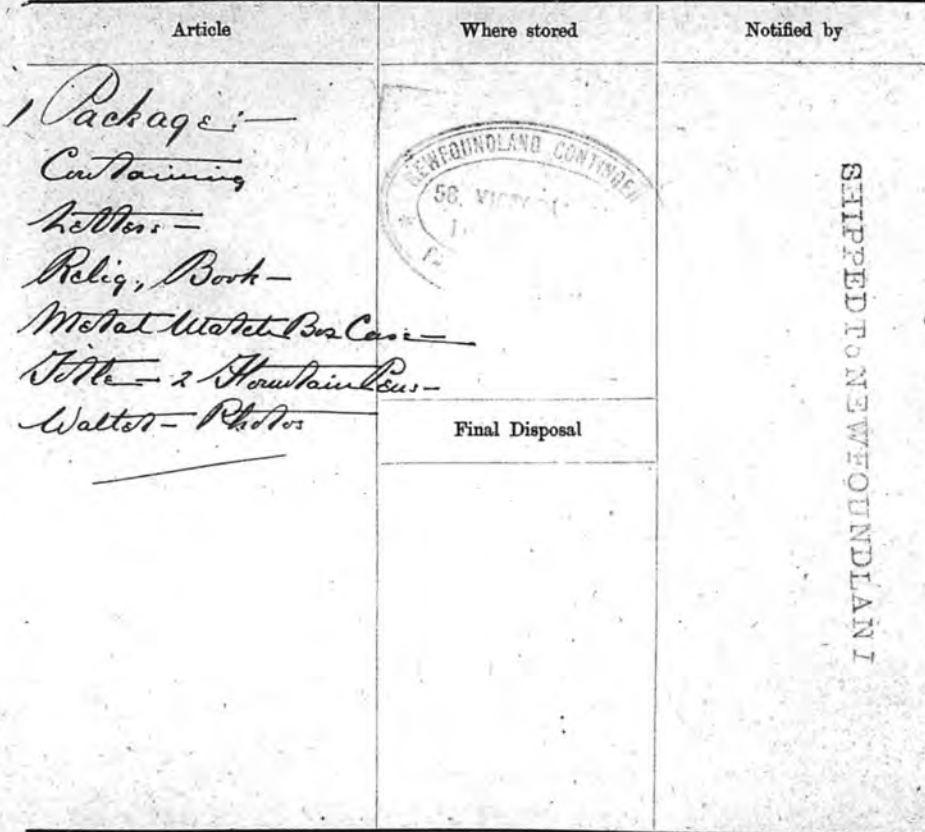 Article
Where stored
Notified by
1 Package:—
Containing
Letters—
Relig, Book—
Metal Match Box Case—
Title— 2 Fountain Pens—
Wallet— Photos
NEWFOUNDLAND CONTINGEN
58, VICTO
Final Disposal
SHIPPED To NEWFOUNDLAN